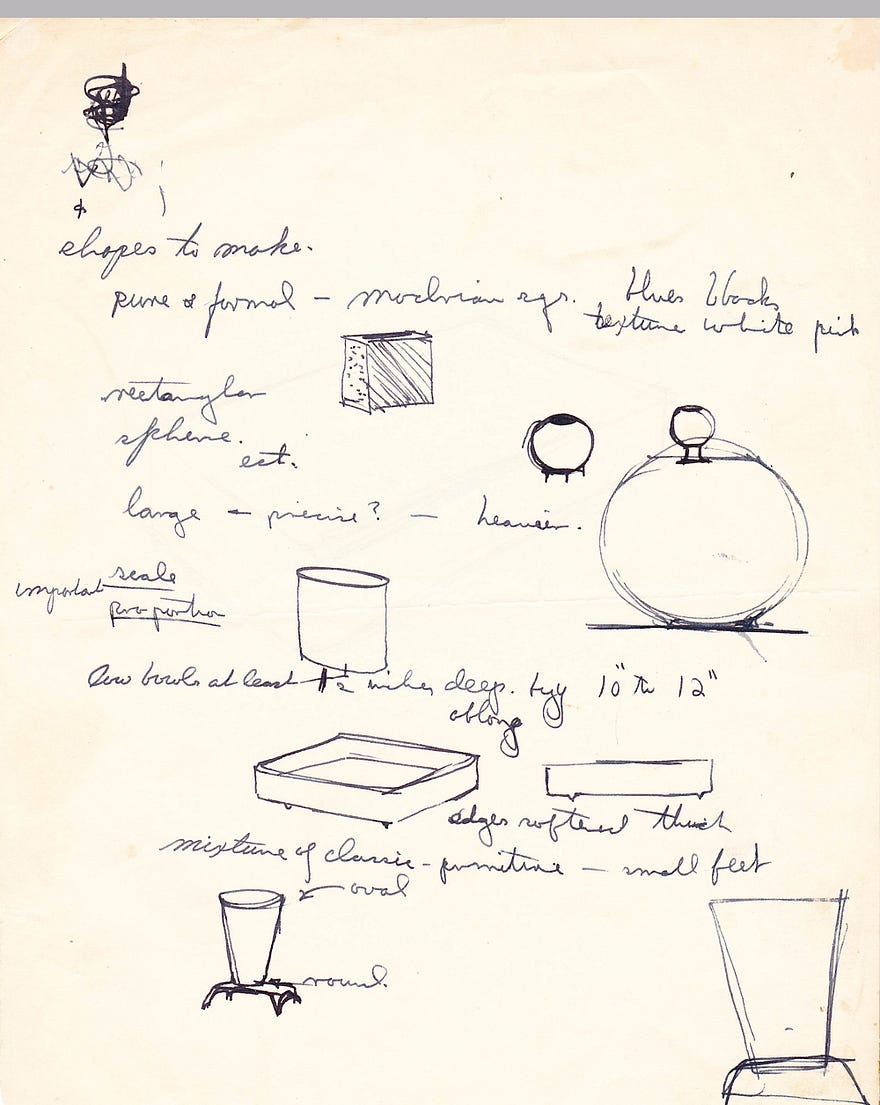 shapes to make.
pure & formal — mondrian sqs. blues blacks
texture white pink
rectangler
sphere.
ect.
large — precise? — heavier.
important scale
proportion
low bowls at least 2 inches deep. by 10" to 12"
oblong
edges softened
mixture of classic - primitive — small feet
oval
round.